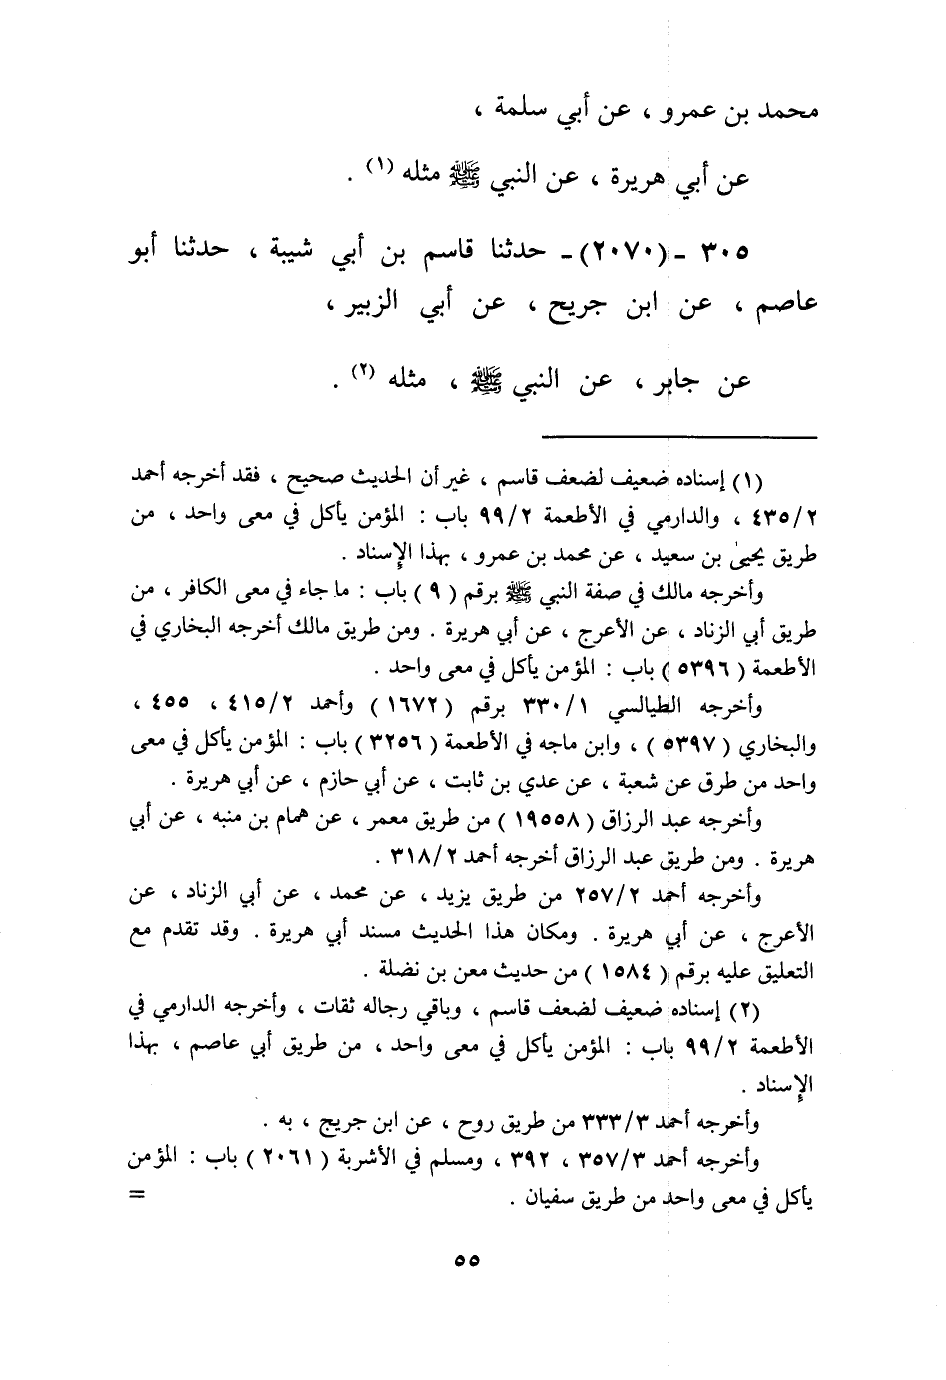 محمد بن عمرو ، عن أبي سلمة ،
عن أبي هريرة ، عن النبي ﷺ مثله (١) .
٣٠٥ ـ (٢٠٧٠) ـ حدثنا قاسم بن أبي شيبة ، حدثنا أبو
عاصم ، عن ابن جريح ، عن أبي الزبير ،
عن جابر ، عن النبي ﷺ ، مثله (٢) .
(١) إسناده ضعيف لضعف قاسم ، غير أن الحديث صحيح ، فقد أخرجه أحمد
٤٣٥/٢ ، والدارمي في الأطعمة ٩٩/٢ باب : المؤمن يأكل في معى واحد ، من
طريق يحيىٰ بن سعيد ، عن محمد بن عمرو ، بهذا الإسناد .
وأخرجه مالك في صفة النبي ﷺ برقم ( ٩ ) باب : ما جاء في معى الكافر ، من
طريق أبي الزناد ، عن الأعرج ، عن أبي هريرة . ومن طريق مالك أخرجه البخاري في
الأطعمة ( ٥٣٩٦ ) باب : المؤمن يأكل في معى واحد .
وأخرجه الطيالسي ٣٣٠/١ برقم ( ١٦٧٢ ) وأحمد ٤١٥/٢ ، ٤٥٥ ،
والبخاري ( ٥٣٩٧ ) ، وابن ماجه في الأطعمة ( ٣٢٥٦ ) باب : المؤمن يأكل في معى
واحد من طرق عن شعبة ، عن عدي بن ثابت ، عن أبي حازم ، عن أبي هريرة .
وأخرجه عبد الرزاق ( ١٩٥٥٨ ) من طريق معمر ، عن همام بن منبه ، عن أبي
هريرة . ومن طريق عبد الرزاق أخرجه أحمد ٣١٨/٢ .
وأخرجه أحمد ٢٥٧/٢ من طريق يزيد ، عن محمد ، عن أبي الزناد ، عن
الأعرج ، عن أبي هريرة . ومكان هذا الحديث مسند أبي هريرة . وقد تقدم مع
التعليق عليه برقم ( ١٥٨٤ ) من حديث معن بن نضلة .
(٢) إسناده ضعيف لضعف قاسم ، وباقي رجاله ثقات ، وأخرجه الدارمي في
الأطعمة ٩٩/٢ باب : المؤمن يأكل في معى واحد ، من طريق أبي عاصم ، بهذا
الإسناد .
وأخرجه أحمد ٣٣٣/٣ من طريق روح ، عن ابن جريج ، به .
وأخرجه أحمد ٣٥٧/٣ ، ٣٩٢ ، ومسلم في الأشربة ( ٢٠٦١ ) باب : المؤمن
يأكل في معى واحد من طريق سفيان . =
٥٥